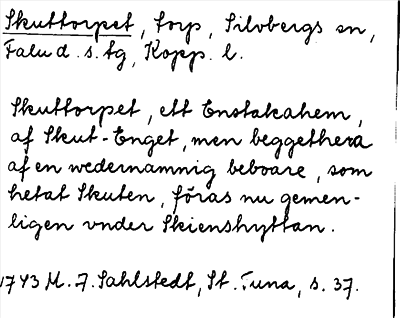 Skuttorpet, torp, Silvbergs sn,
Falu d. s. tg, Kopp. l.
Skuttorpet, ett Enstakahem,
af Skut-Enget, men beggethera
af en wedernamnig beboare, som
hetat Skuten, föras nu gemen-
ligen vnder Skienshyttan.
1743 M. F. Sahlstedt, St. Tuna, s. 37.